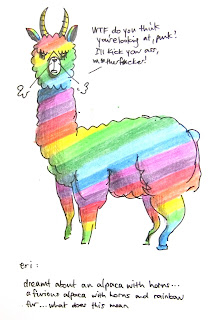 WTF do you think
you're looking at, punk!
I'll kick your ass,
m*therf*cker!
eri:
dreamt about an alpaca with horns...
a furious alpaca with horns and rainbow
fur... what does this mean